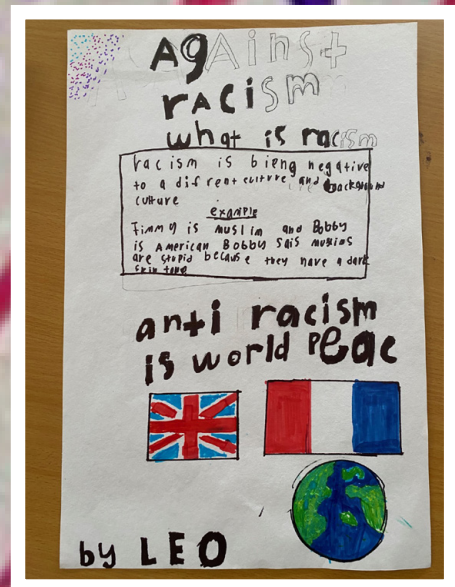 AgAinst
rAcism
what is racism
racism is bieng negative
to a difrent culture, and background
culture
example
Timmy is muslim and Bobby
is American Bobby sais muslims
are stupid because they have a dark
skin tone
anti racism
is world Peac
by LEO